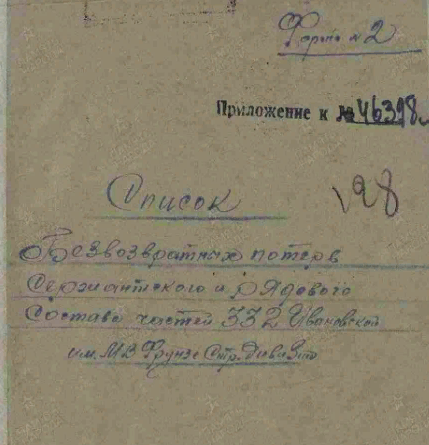 Форма № 2
Приложение к № 46318с
198
Список
Безвозвратных потерь
Сержантского и рядового
Состава частей 332 Ивановской
им. МВ Фрунзе Стр. Дивизии